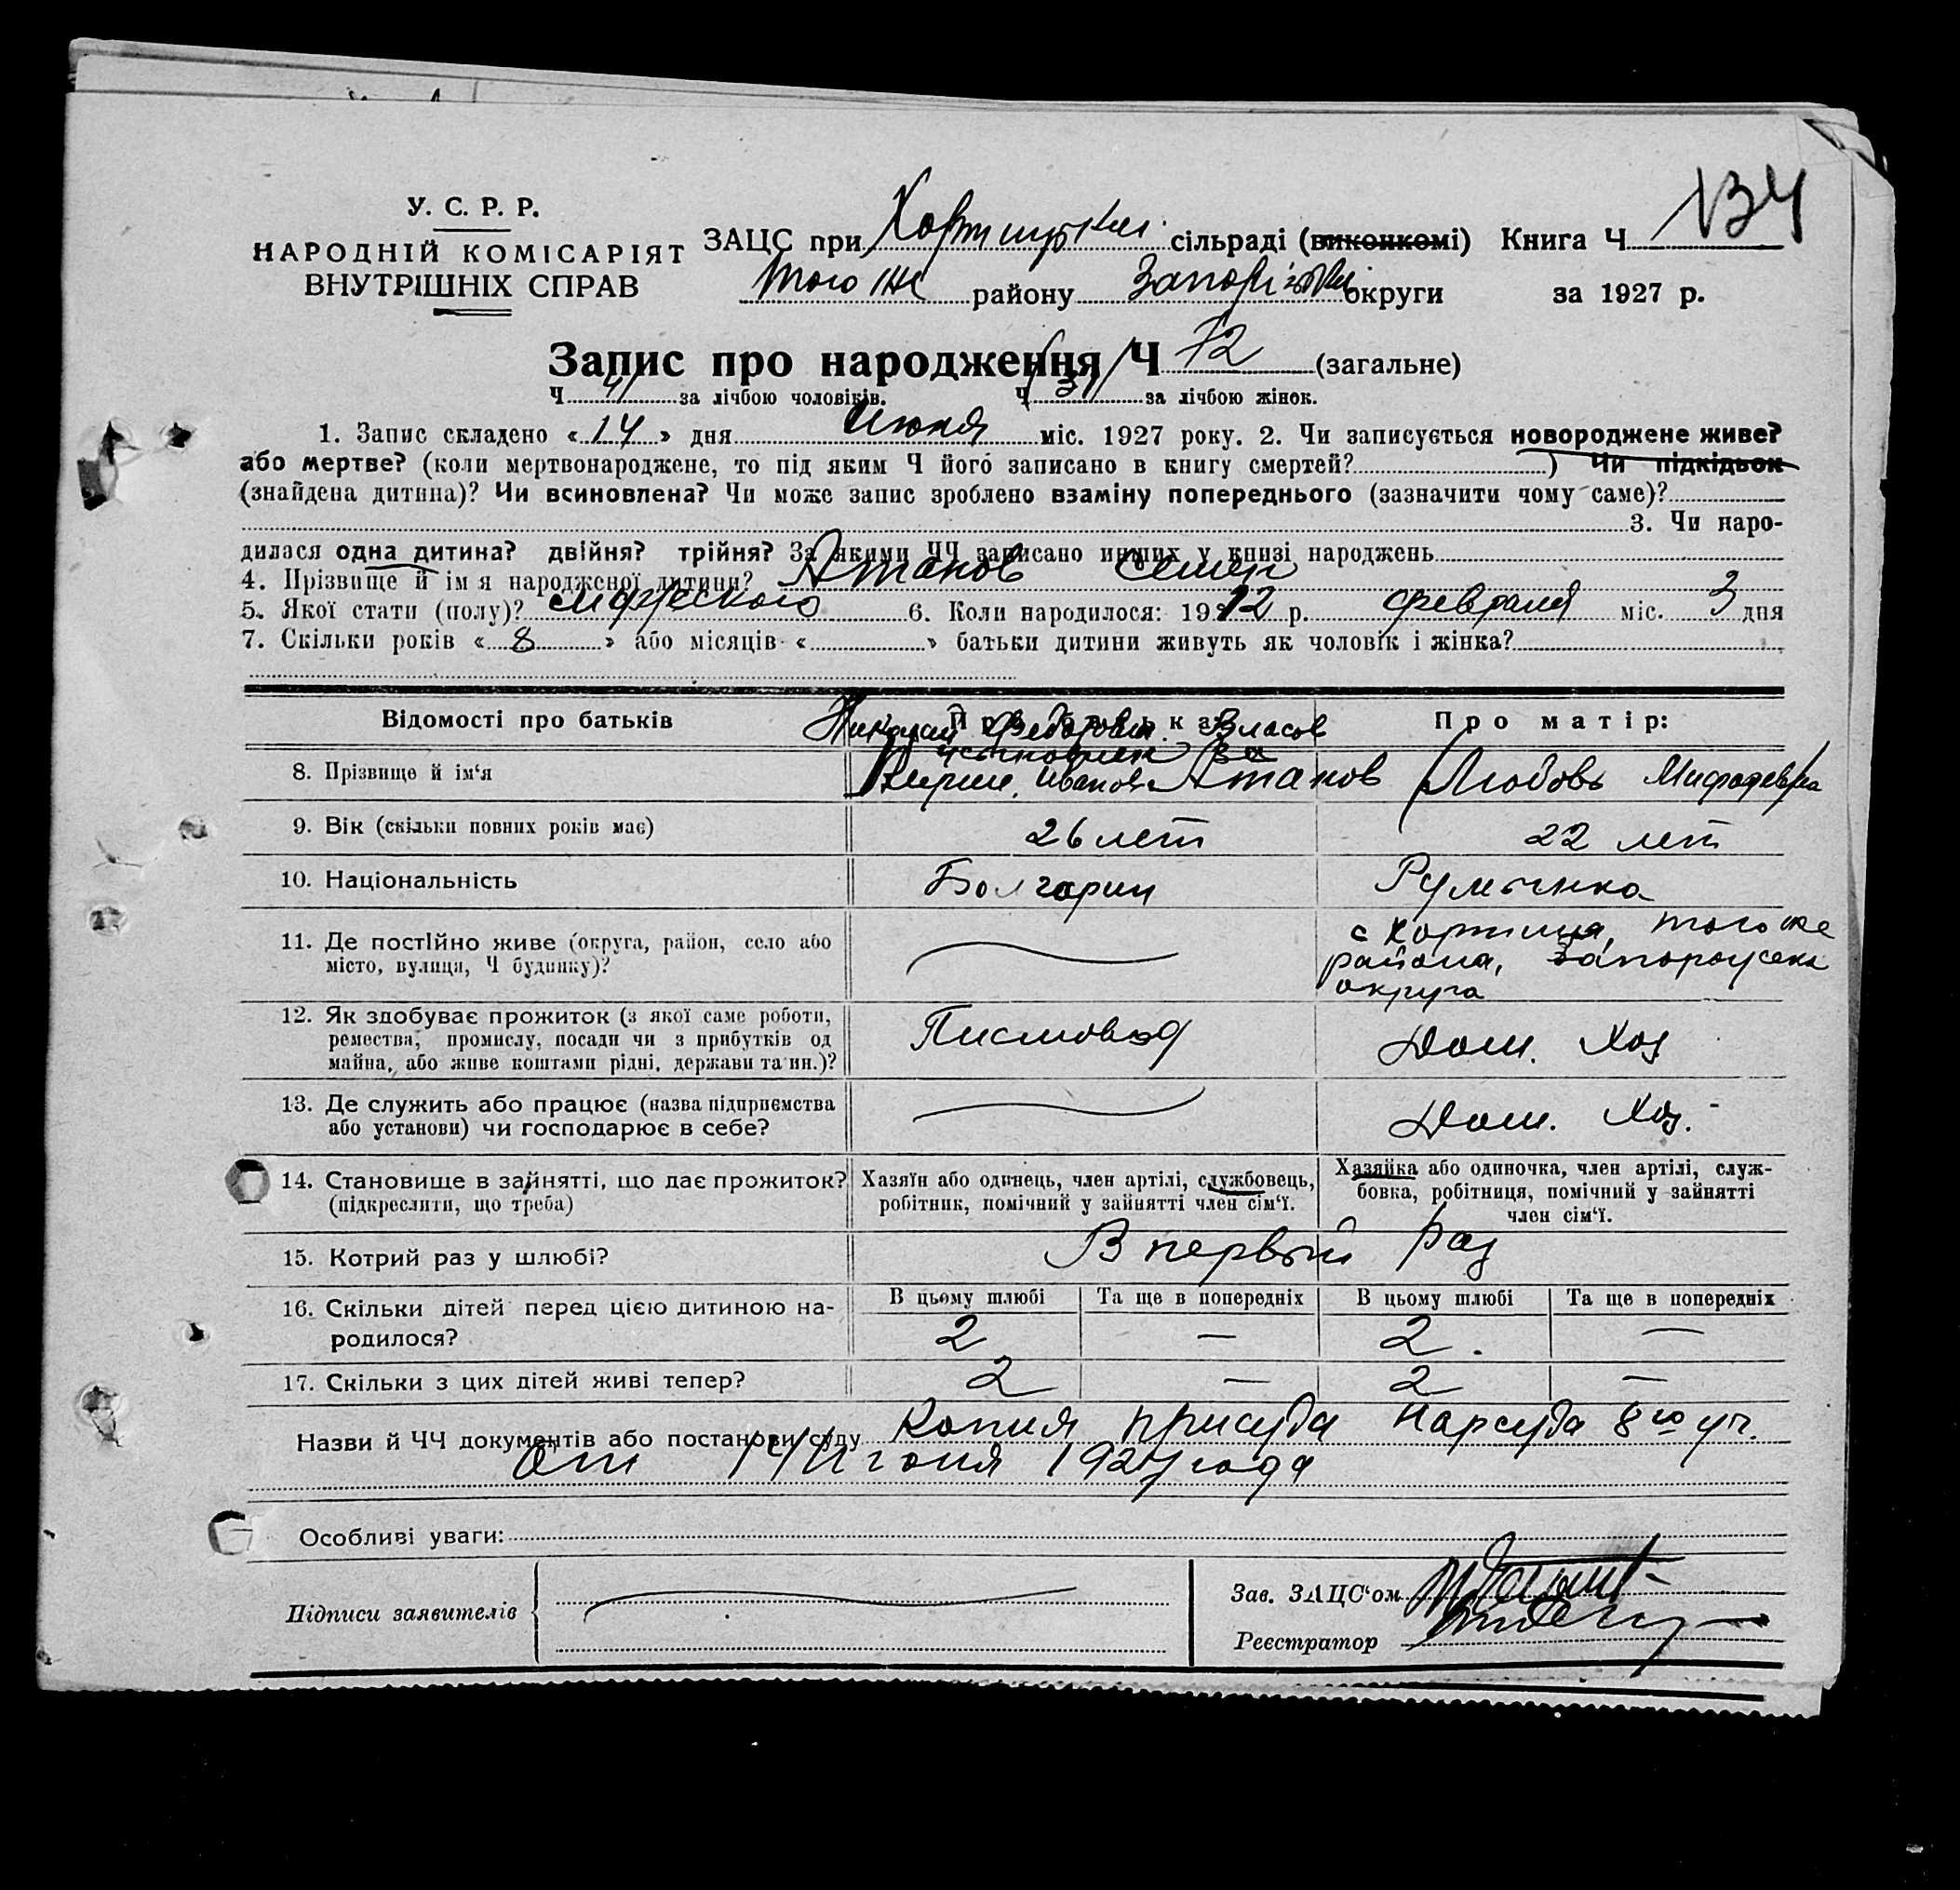 У. С. Р. Р.
НАРОДНІЙ КОМІСАРІЯТ
ВНУТРІШНІХ СПРАВ
ЗАЦС при сільраді (виконкомі) Книга Ч 134
того же району округи за 1927 р.
Запис про народження Ч 72 (загальне)
Ч 41 за лічбою чоловіків. Ч 31 за лічбою жінок.
1. Запис складено «14» дня Июня міс. 1927 року. 2. Чи записується новороджене живе?
або мертве? (коли мертвонароджене, то під яким Ч його записано в книгу смертей? ) Чи підкідьок
(знайдена дитина)? Чи всиновлена? Чи може запис зроблено взаміну попереднього (зазначити чому саме)?
3. Чи наро-
дилася одна дитина? двійня? трійня? За якими ЧЧ записано инших у книзі народжень
4. Прізвище й ім'я народженої дитини? Атанов Семен
5. Якої стати (полу)? мужеского 6. Коли народилося: 1912 р. февраля міс. 3 дня
7. Скільки років «8» або місяців « » батьки дитини живуть як чоловік і жінка?
Відомості про батьків Про батька: Про матір:
Николай Федорович Власов
8. Прізвище й ім'я Иванов Атанов Любовь
9. Вік (скільки повних років має) 26 лет 22 лет
10. Національність Болгарин Румынка
11. Де постійно живе (округа, район, село або с Хортица, того же
місто, вулиця, Ч будинку)? района, Запорожск
округа
12. Як здобуває прожиток (з якої саме роботи, Писмовод Дом. Хоз
ремества, промислу, посади чи з прибутків од
майна, або живе коштами рідні, держави та ин.)?
13. Де служить або працює (назва підприємства Дом. Хоз.
або установи) чи господарює в себе?
14. Становище в зайнятті, що дає прожиток? Хазяїн або одинець, член артілі, службовець, Хазяйка або одиночка, член артілі, служ-
(підкреслити, що треба) робітник, помічний у зайнятті член сім'ї. бовка, робітниця, помічний у зайнятті
член сім'ї.
15. Котрий раз у шлюбі? В первый раз
16. Скільки дітей перед цією дитиною на- В цьому шлюбі Та ще в попередніх В цьому шлюбі Та ще в попередніх
родилося? 2 — 2. —
17. Скільки з цих дітей живі тепер? 2 — 2 —
Назви й ЧЧ документів або постанови суду Копия присуда Нарсуда 8го уч.
От 14 Июня 1927 года
Особливі уваги:
Підписи заявителів
Зав. ЗАЦС'ом
Реєстратор